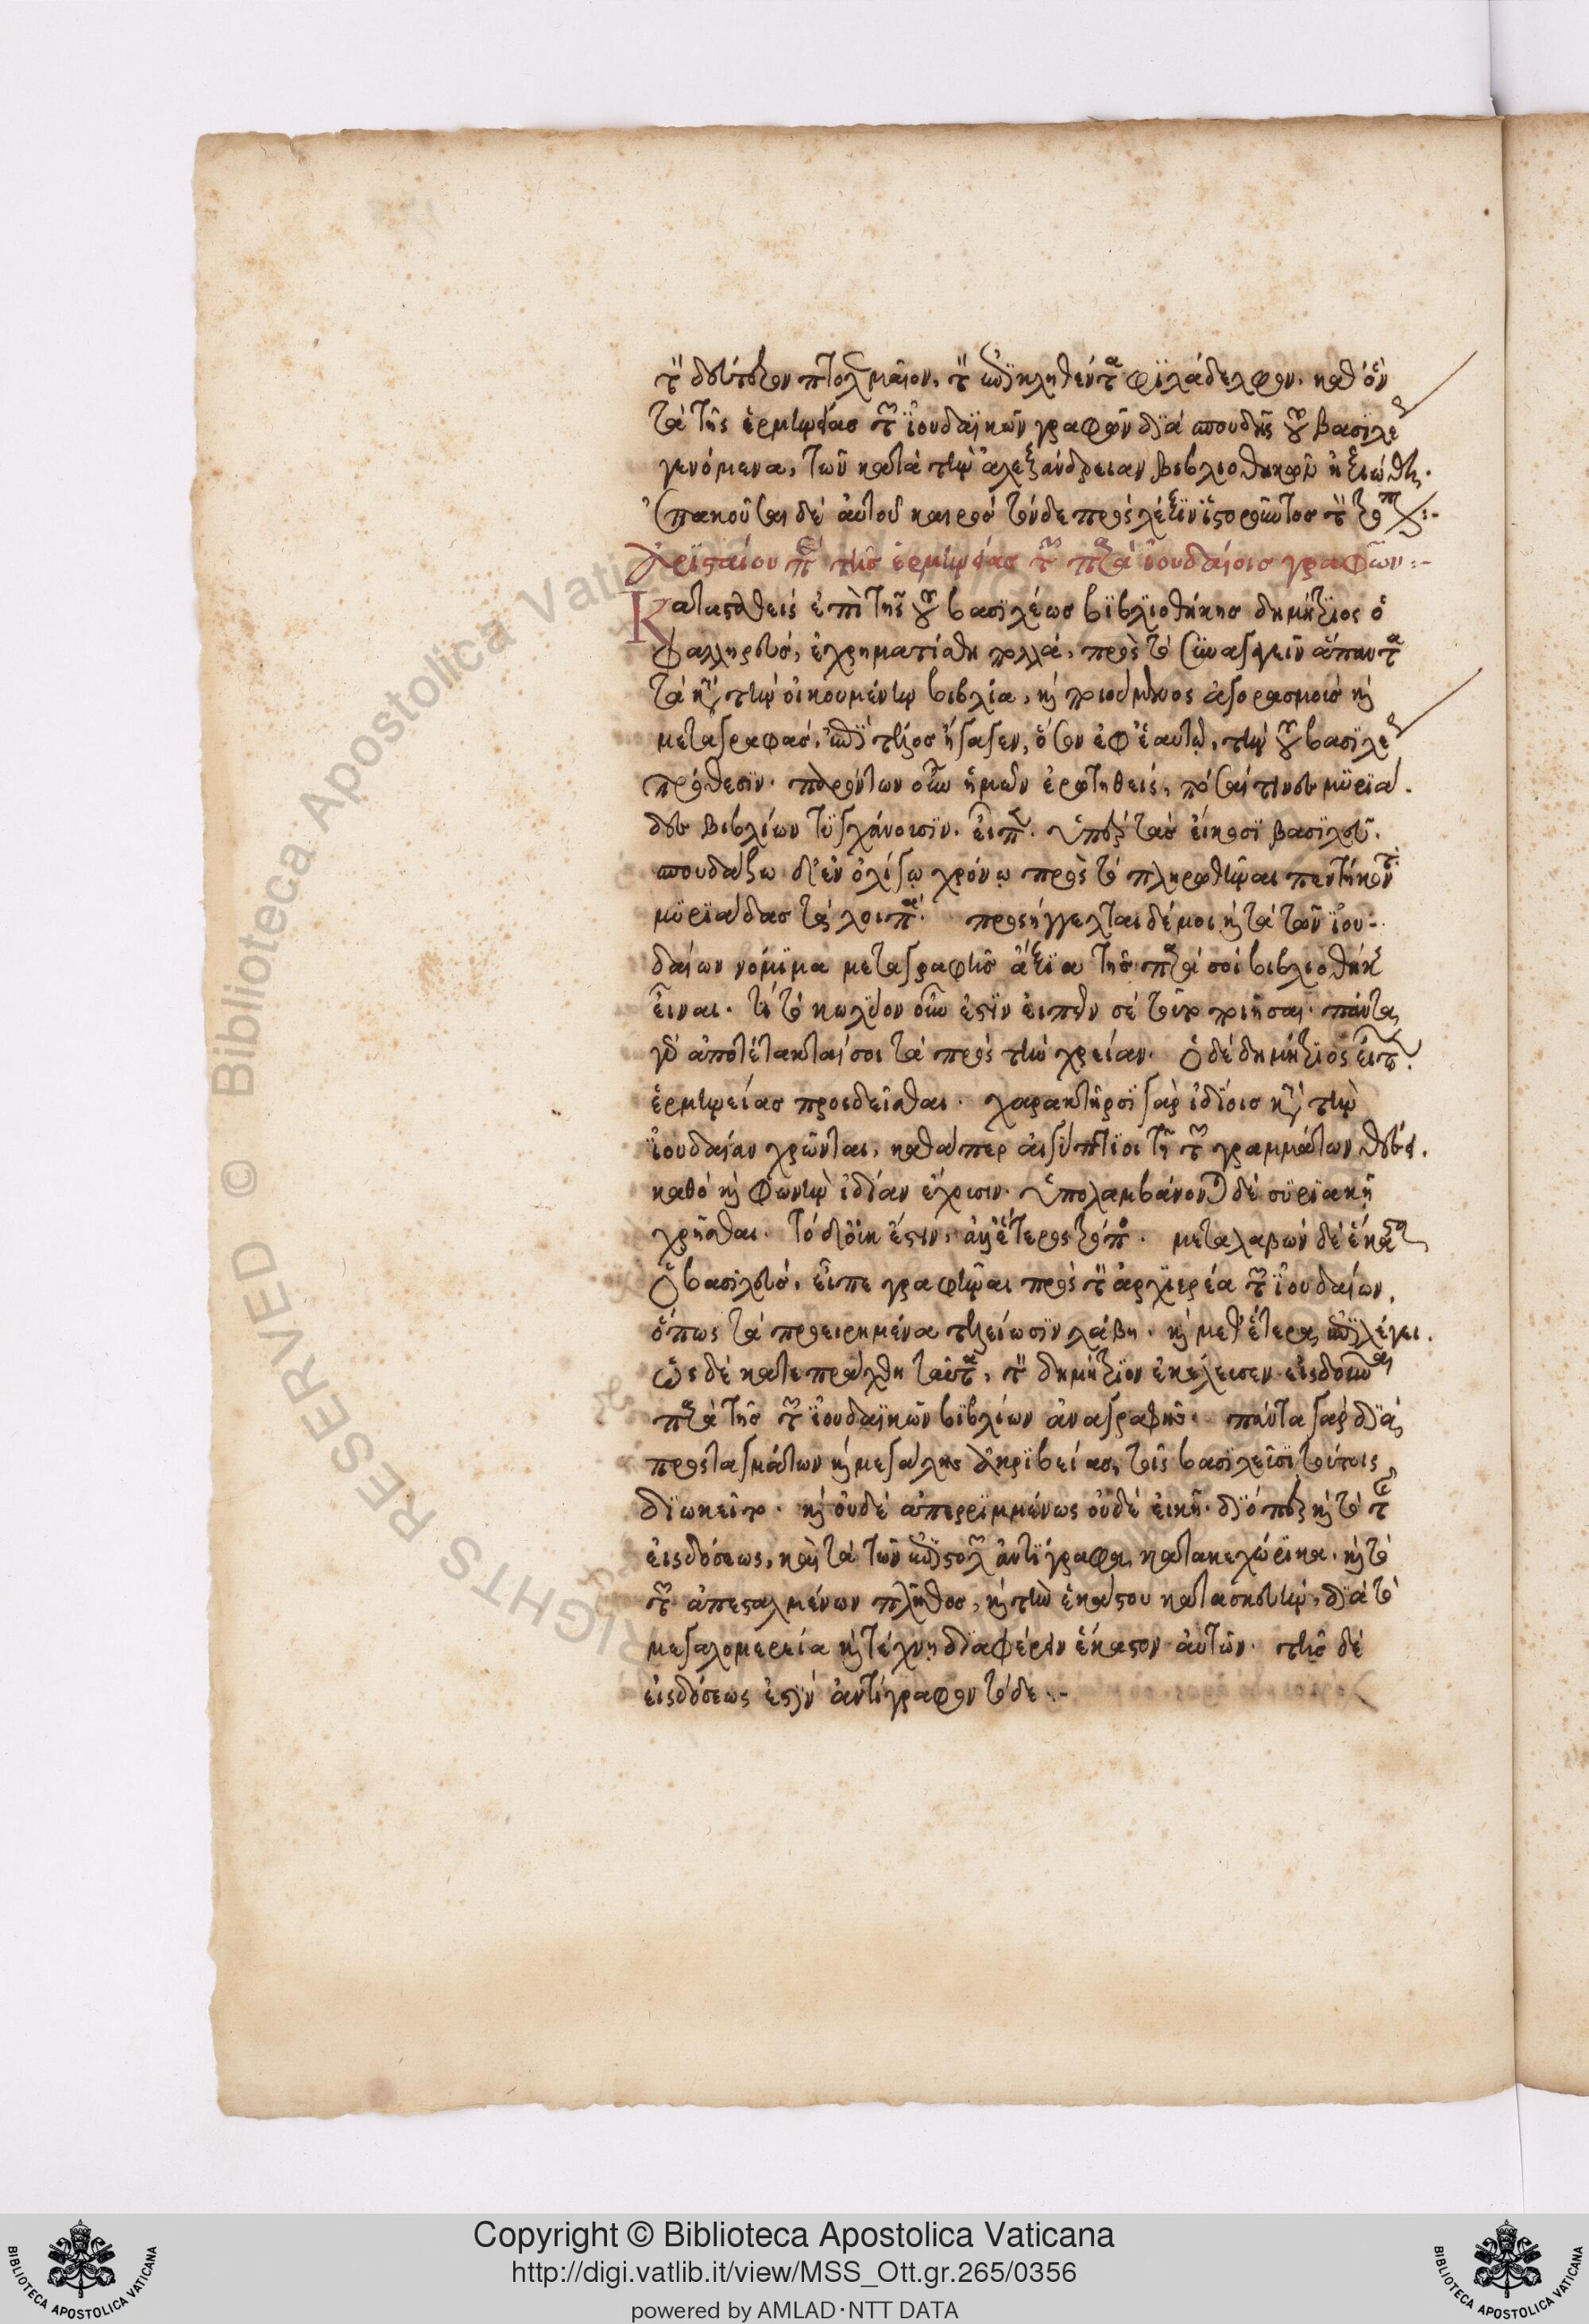 τὸν δεύτερον πτολεμαῖον, τὸν ἐπικληθέντα φϊλάδελφον. καθ' ὃν
τὰ τῆς ἑρμηνείας τῶν ἰουδαϊκῶν γραφῶν διὰ σπουδῆς τοῦ βασιλέως
γενόμενα, τῶν κατὰ τὴν ἀλεξάνδρειαν βιβλιοθηκῶν ἠξιώθη.
ἐπακοῦσαι δὲ αὐτοῦ καιρὸς τόνδε πρὸς λέξιν ἱστοροῦντος τὸν τρόπον :-
Ἀρισταίου περὶ τῆς ἑρμηνείας τῶν παρὰ ἰουδαίοις γραφῶν :-
Κατασταθεὶς ἐπὶ τῆς τοῦ βασιλέως βιβλιοθήκης δημήτριος ὁ
φαλληρεύς, ἐχρηματίσθη πολλά, πρὸς τὸ συναγαγεῖν ἅπαντα
τὰ κατὰ τὴν οἰκουμένην βιβλία, καὶ ποιούμενος ἀγορασμοὺς καὶ
μεταγραφάς, ἐπὶ τέλος ἤγαγεν, ὅσον ἐφ' ἑαυτῷ, τὴν τοῦ βασιλέως
πρόθεσιν. παρόντων οὖν ἡμῶν ἐρωτηθείς, πόσαι τινὲς μυριά
δες βιβλίων τυγχάνουσιν. εἶπεν. ὑπὲρ τὰς εἴκοσι βασιλεῦ.
σπουδάξω δ' ἐν ὀλίγῳ χρόνῳ πρὸς τὸ πληρωθῆναι πεντήκοντα
μυριάδας τὰ λοιπά. προσήγγελται δέ μοι καὶ τὰ τῶν ἰου-
δαίων νόμιμα μεταγραφῆς ἄξια τῆς παρὰ σοὶ βιβλιοθήκης
εἶναι. τί τὸ κωλῦον οὖν ἐστὶν εἰπεῖν σε τοῦτο ποιῆσαι. πάντα
γὰρ ἀποτέτακταί σοι τὰ πρὸς τὴν χρείαν. ὁ δὲ δημήτριος εἶπεν.
ἑρμηνείας προσδεῖσθαι. χαρακτῆρσι γὰρ ἰδίοις κατὰ τὴν
ἰουδαίαν χρῶνται, καθάπερ αἰγύπτιοι τῇ τῶν γραμμάτων θέσει.
καθὸ καὶ φωνὴν ἰδίαν ἔχουσιν. ὑπολαμβάνονται δὲ συριακῇ
χρῆσθαι. τὸ δ' οὐκ ἔστιν, ἀλλ' ἕτερος τρόπος. μεταλαβὼν δὲ ἕκαστα
ὁ βασιλεύς, εἶπε γραφῆναι πρὸς τὸν ἀρχιερέα τῶν ἰουδαίων,
ὅπως τὰ προειρημένα τελείωσιν λάβῃ. καὶ μεθ' ἕτερα ἐπιλέγει.
ὡς δὲ κατεπράχθη ταῦτα, τὸν δημήτριον ἐκέλευσεν εἰσδοῦναι
παρὰ τῆς τῶν ἰουδαϊκῶν βιβλίων ἀναγραφῆς. πάντα γὰρ διὰ
προσταγμάτων καὶ μεγάλης ἀκριβείας, τοῖς βασιλεῦσι τούτοις
διωκεῖτο. καὶ οὐδὲ ἀπερριμμένως οὐδὲ εἰκῇ. διόπερ καὶ τὸ τῆς
εἰσδόσεως, καὶ τὰ τῶν ἐπιστολῶν ἀντίγραφα, κατακεχώρικα. καὶ τὸ
τῶν ἀπεσταλμένων πλῆθος, καὶ τὴν ἑκάστου κατασκευήν, διὰ τὸ
μεγαλομερείᾳ καὶ τέχνῃ διαφέρειν ἕκαστον αὐτῶν. τῆς δὲ
εἰσδόσεως ἐστὶν ἀντίγραφον τόδε :-
Copyright © Biblioteca Apostolica Vaticana
http://digi.vatlib.it/view/MSS_Ott.gr.265/0356
powered by AMLAD·NTT DATA